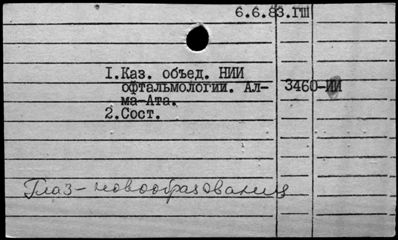 6.6.83.ГШ
1.Каз. объед. НИИ
офтальмологии. Ал-
ма-Ата.
3460-ИИ
2.Сост.
Глаз - новообразования